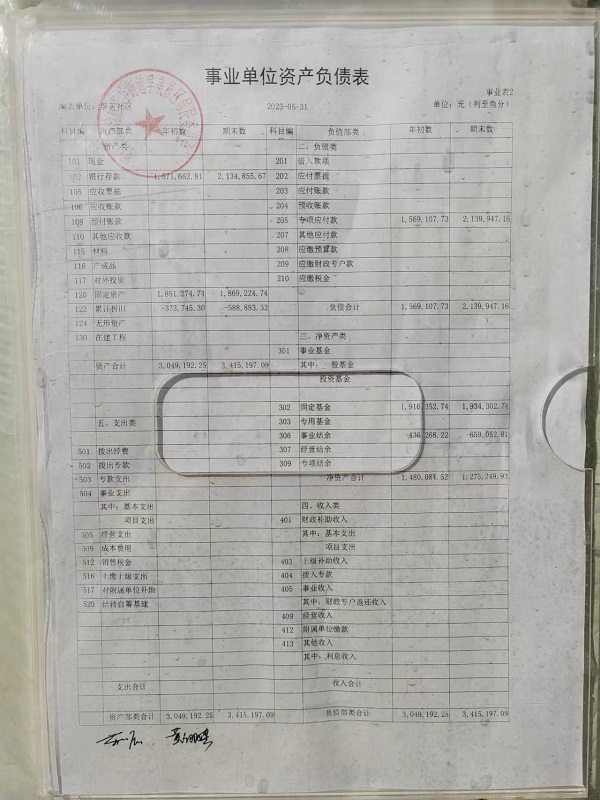 事业单位资产负债表
事业表2
编表单位: 社区 2023-05-31 单位: 元(列至角分)
科目编 资产部类 年初数 期末数 科目编 负债部类 年初数 期末数
资产类 二、负债类
101 现金 201 借入款项
102 银行存款 1,571,662.81 2,134,855.67 202 应付票据
105 应收票据 203 应付账款
106 应收账款 204 预收账款
108 预付账款 205 专项应付款 1,569,107.73 2,139,947.16
110 其他应收款 207 其他应付款
115 材料 208 应缴预算款
116 产成品 209 应缴财政专户款
117 对外投资 210 应缴税金
120 固定资产 1,851,274.74 1,869,224.74
122 累计折旧 -373,745.30 -588,883.32 负债合计 1,569,107.73 2,139,947.16
124 无形资产
130 在建工程 三、净资产类
301 事业基金
资产合计 3,049,192.25 3,415,197.09 其中: 一般基金
投资基金
302 固定基金 1,916,352.74 1,934,302.74
五、支出类 303 专用基金
306 事业结余 -436,268.22 -659,052.81
501 拨出经费 307 经营结余
502 拨出专款 309 专项结余
503 专款支出 净资产合计 1,480,084.52 1,275,249.93
504 事业支出
其中: 基本支出 四、收入类
项目支出 401 财政补助收入
505 经营支出 其中: 基本支出
509 成本费用 项目支出
512 销售税金 403 上级补助收入
516 上缴上级支出 404 拨入专款
517 对附属单位补助 405 事业收入
520 结转自筹基建 其中: 财政专户返还收入
409 经营收入
412 附属单位缴款
413 其他收入
其中: 利息收入
支出合计 收入合计
资产部类合计 3,049,192.25 3,415,197.09 负债部类合计 3,049,192.25 3,415,197.09